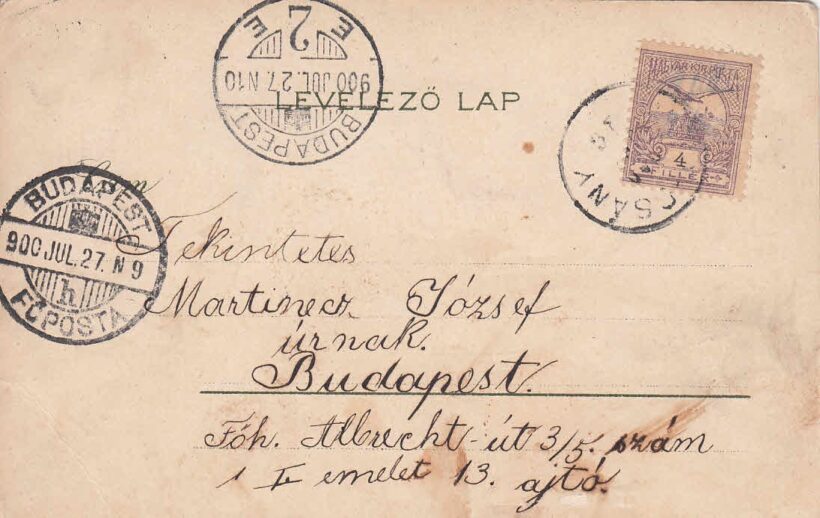 E 2 E
900 JUL.27. N10
BUDAPEST
LEVELEZŐ LAP
MAGYAR KIR. POSTA
4
FILLÉR
BUDAPEST
900 JUL.27. N 9
h
FŐPOSTA
Tekintetes
Martinecz József
úrnak.
Budapest.
Főh. Albrecht-út 3/5. szám
I emelet 13. ajtó.